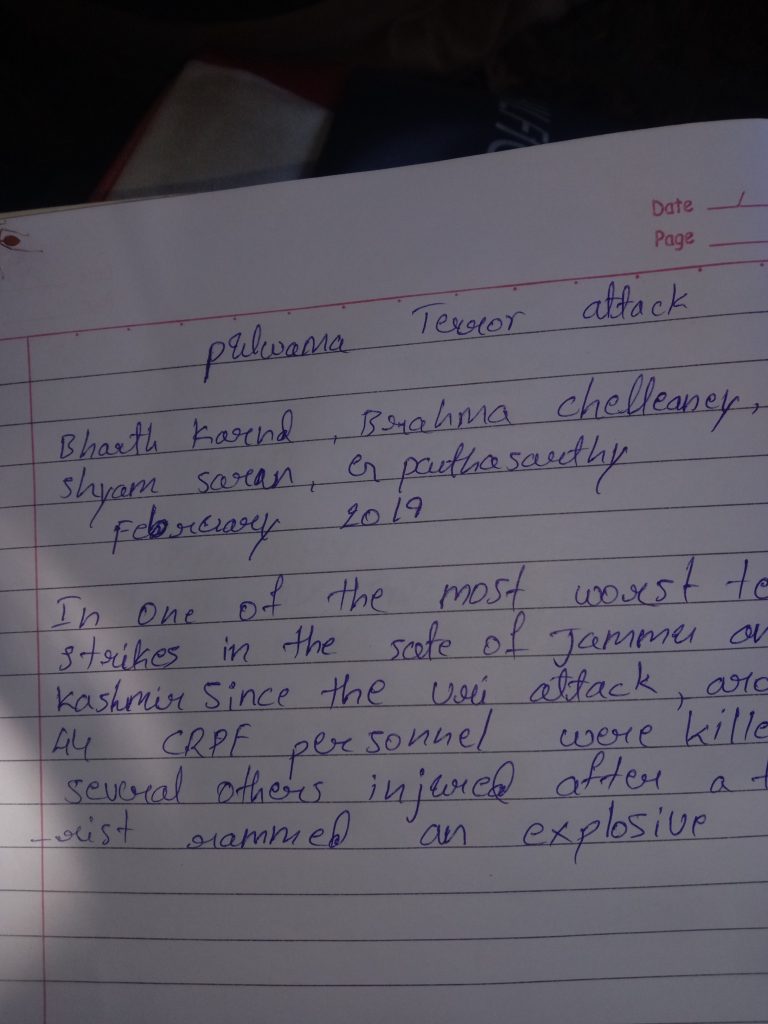 Date /
Page
Pulwama Terror attack
Bharth Karnd, Brahma chelleaney,
shyam saran, G parthasarthy
February 2019
In one of the most worst te
strikes in the sate of Jammu an
Kashmir Since the uri attack, aro
44 CRPF personnel were kille
several others injured after a t
-rist rammed an explosive